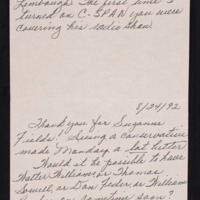 Limbaugh. The first time I
turned on C-SPAN you were
covering his radio show.
8/24/92
Thank you for Suzanne
Fields. Seeing a conservative
made Monday a lot better.
Would it be possible to have
Walter Williams or Thomas
Sowell, or Don Feder or William
sometime soon?